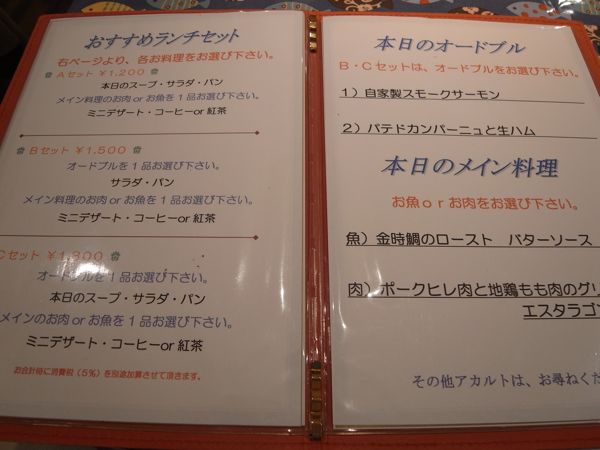 おすすめランチセット
右ページより、各お料理をお選び下さい。
Aセット ¥1,200
本日のスープ・サラダ・パン
メイン料理のお肉 or お魚を1品お選び下さい。
ミニデザート・コーヒーor 紅茶
Bセット ¥1,500
オードブルを1品お選び下さい。
サラダ・パン
メイン料理のお肉 or お魚を1品お選び下さい。
ミニデザート・コーヒーor 紅茶
Cセット ¥1,800
オードブルを1品お選び下さい。
本日のスープ・サラダ・パン
メインのお肉 or お魚を1品お選び下さい。
ミニデザート・コーヒーor 紅茶
お会計時に消費税(5%)を別途加算させて頂きます。
本日のオードブル
B・Cセットは、オードブルをお選び下さい。
1)自家製スモークサーモン
2)パテドカンパーニュと生ハム
本日のメイン料理
お魚 or お肉をお選び下さい。
魚)金時鯛のロースト バターソース
肉)ポークヒレ肉と地鶏もも肉のグリ
エスタラゴ
その他アカルトは、お尋ねくだ